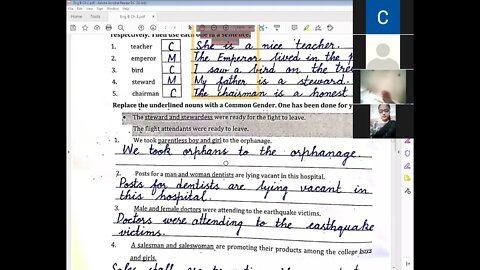 Eng B Ch 2.pdf - Adobe Acrobat Reader DC
respectively. Then use each one in a sentence.
1. teacher C She is a nice teacher.
2. emperor M The Emperor lived in the
3. bird C I saw a bird on the tree
4. steward M My father is a steward.
5. chairman C The chairman is a honest
Replace the underlined nouns with a Common Gender. One has been done for y
The steward and stewardess were ready for the fight to leave.
The flight attendants were ready to leave.
1. We took parentless boy and girl to the orphanage.
We took orphans to the orphanage.
2. Posts for a man and woman dentists are lying vacant in this hospital.
Posts for dentists are lying vacant in
this hospital.
3. Male and female doctors were attending to the earthquake victims.
Doctors were attending to the earthquake
victims.
4. A salesman and saleswoman are promoting their products among the college boys
and girls.
C